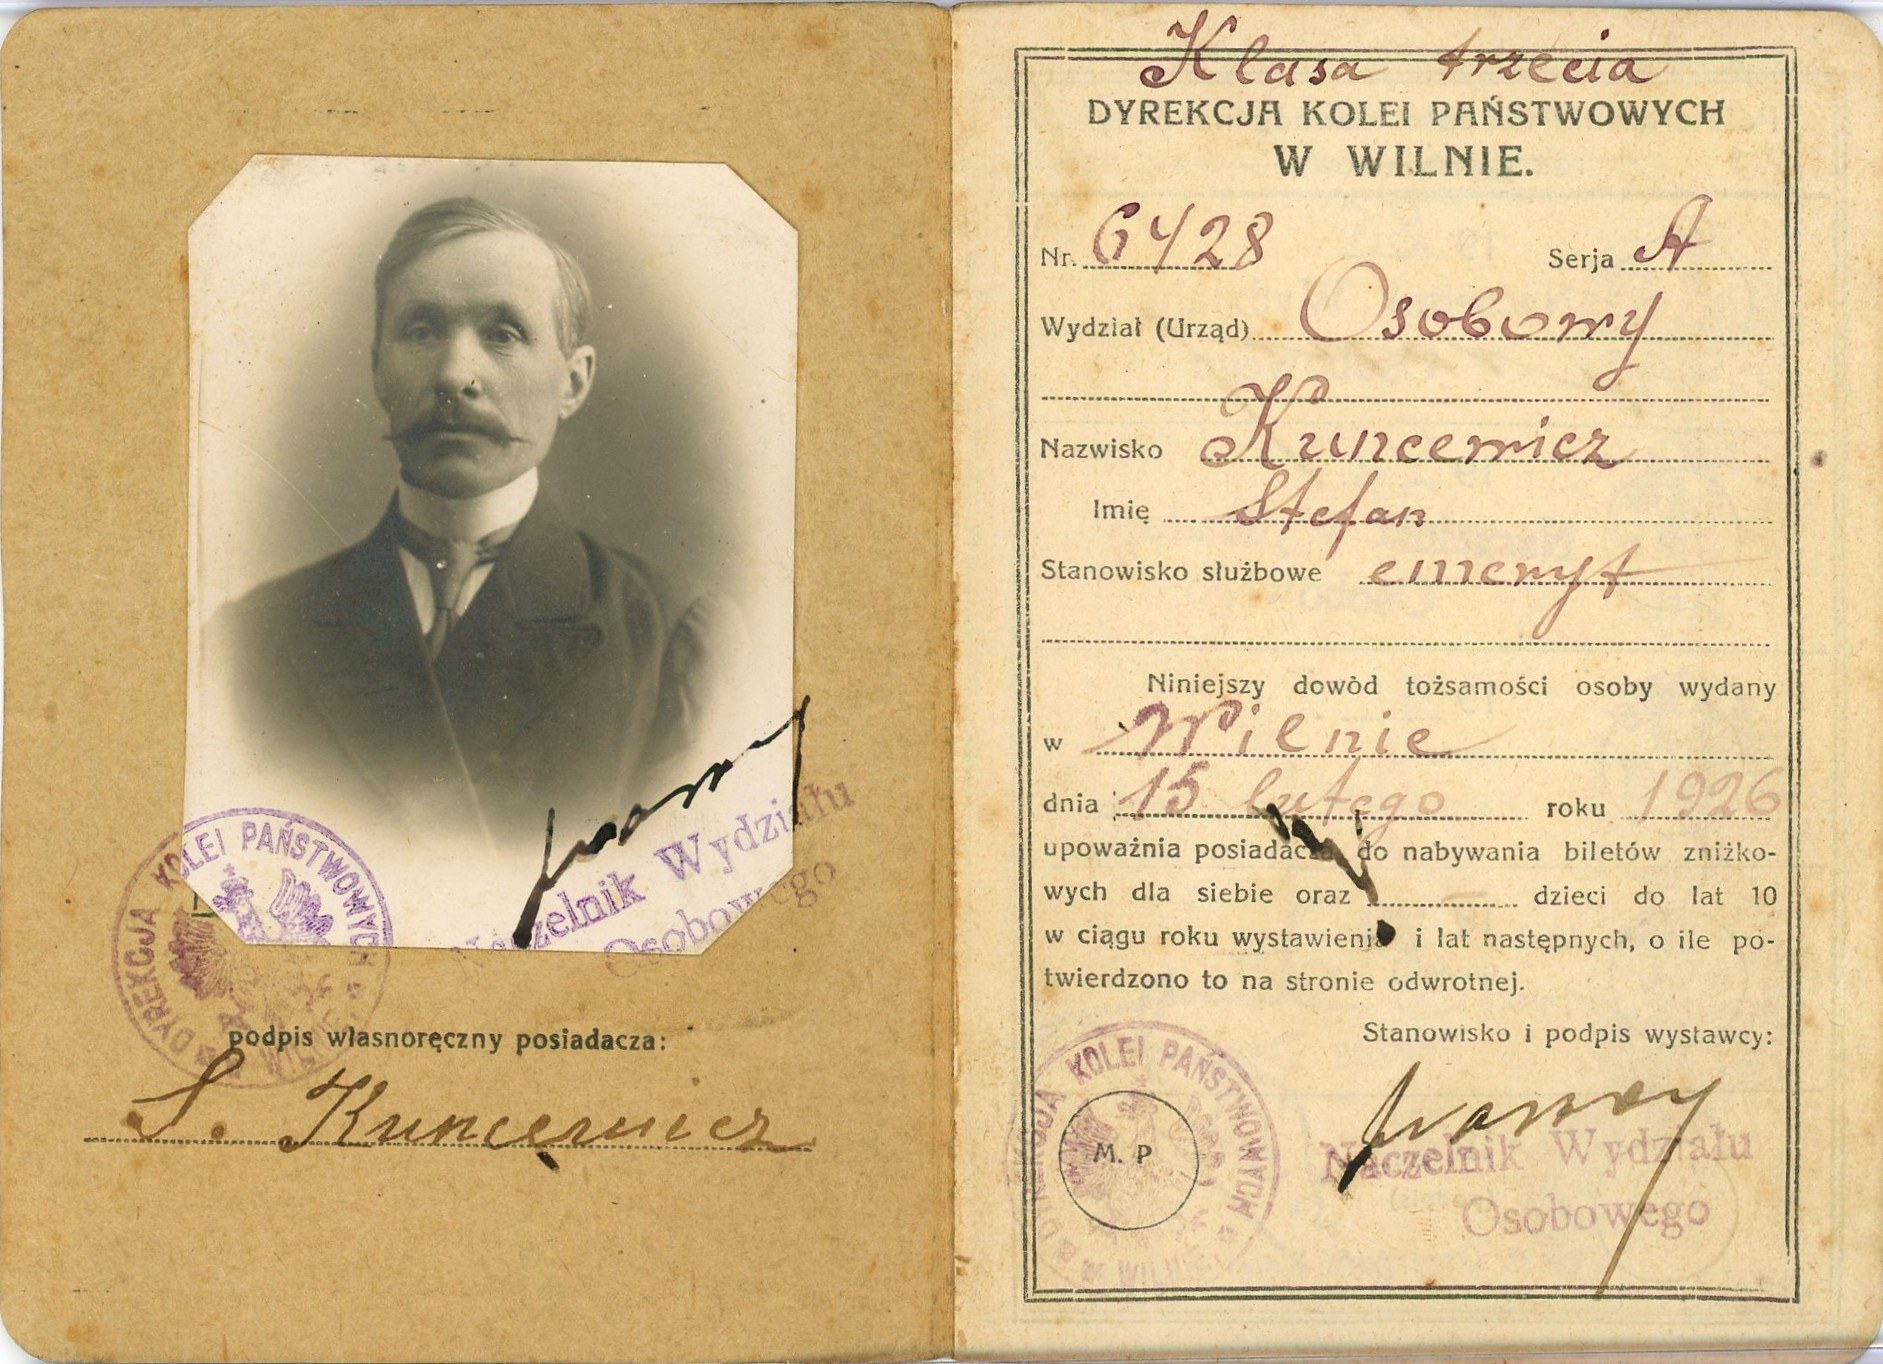 DYREKCJA KOLEI PAŃSTWOWYCH W WILNIE
Naczelnik Wydziału
Osobowego
podpis własnoręczny posiadacza:
S. Kuncewicz
Klasa trzecia
DYREKCJA KOLEI PAŃSTWOWYCH
W WILNIE.
Nr. 6428 Serja A
Wydział (Urząd) Osobowy
Nazwisko Kuncewicz
Imię Stefan
Stanowisko służbowe emeryt
Niniejszy dowòd tożsamości osoby wydany
w Wilnie
dnia 15 lutego roku 1926
upoważnia posiadacza do nabywania biletów zniżko-
wych dla siebie oraz — dzieci do lat 10
w ciągu roku wystawienia i lat następnych, o ile po-
twierdzono to na stronie odwrotnej.
Stanowisko i podpis wystawcy:
DYREKCJA KOLEI PAŃSTWOWYCH W WILNIE
M. P
Naczelnik Wydziału
Osobowego